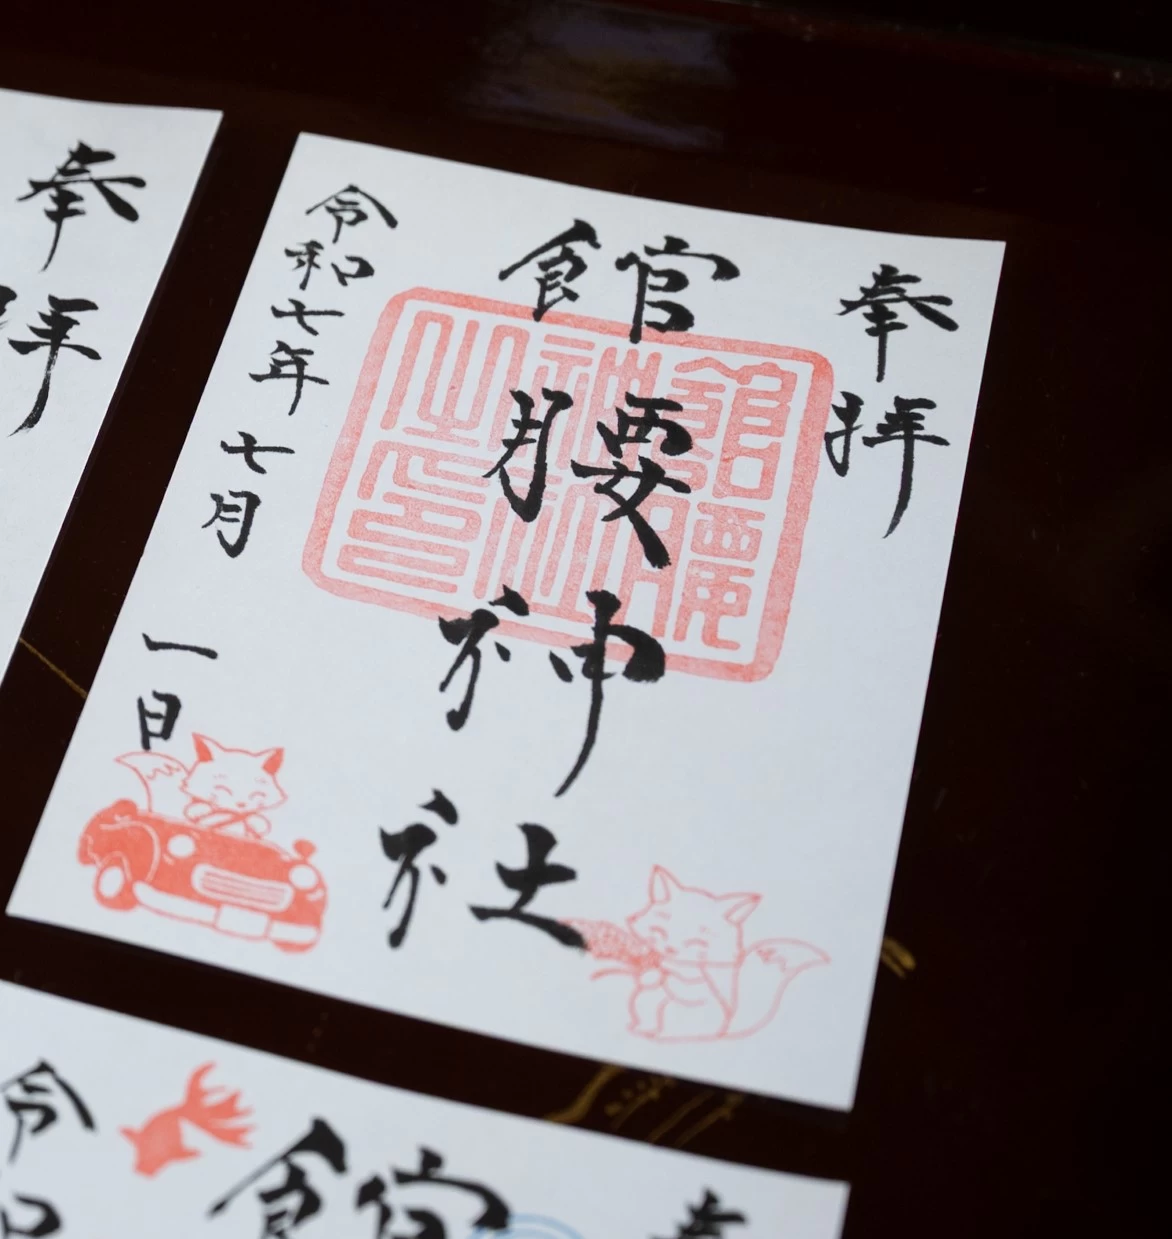 奉拝
館腰神社
令和七年七月一日
館腰神社之印
奉拝
奉
館
令和